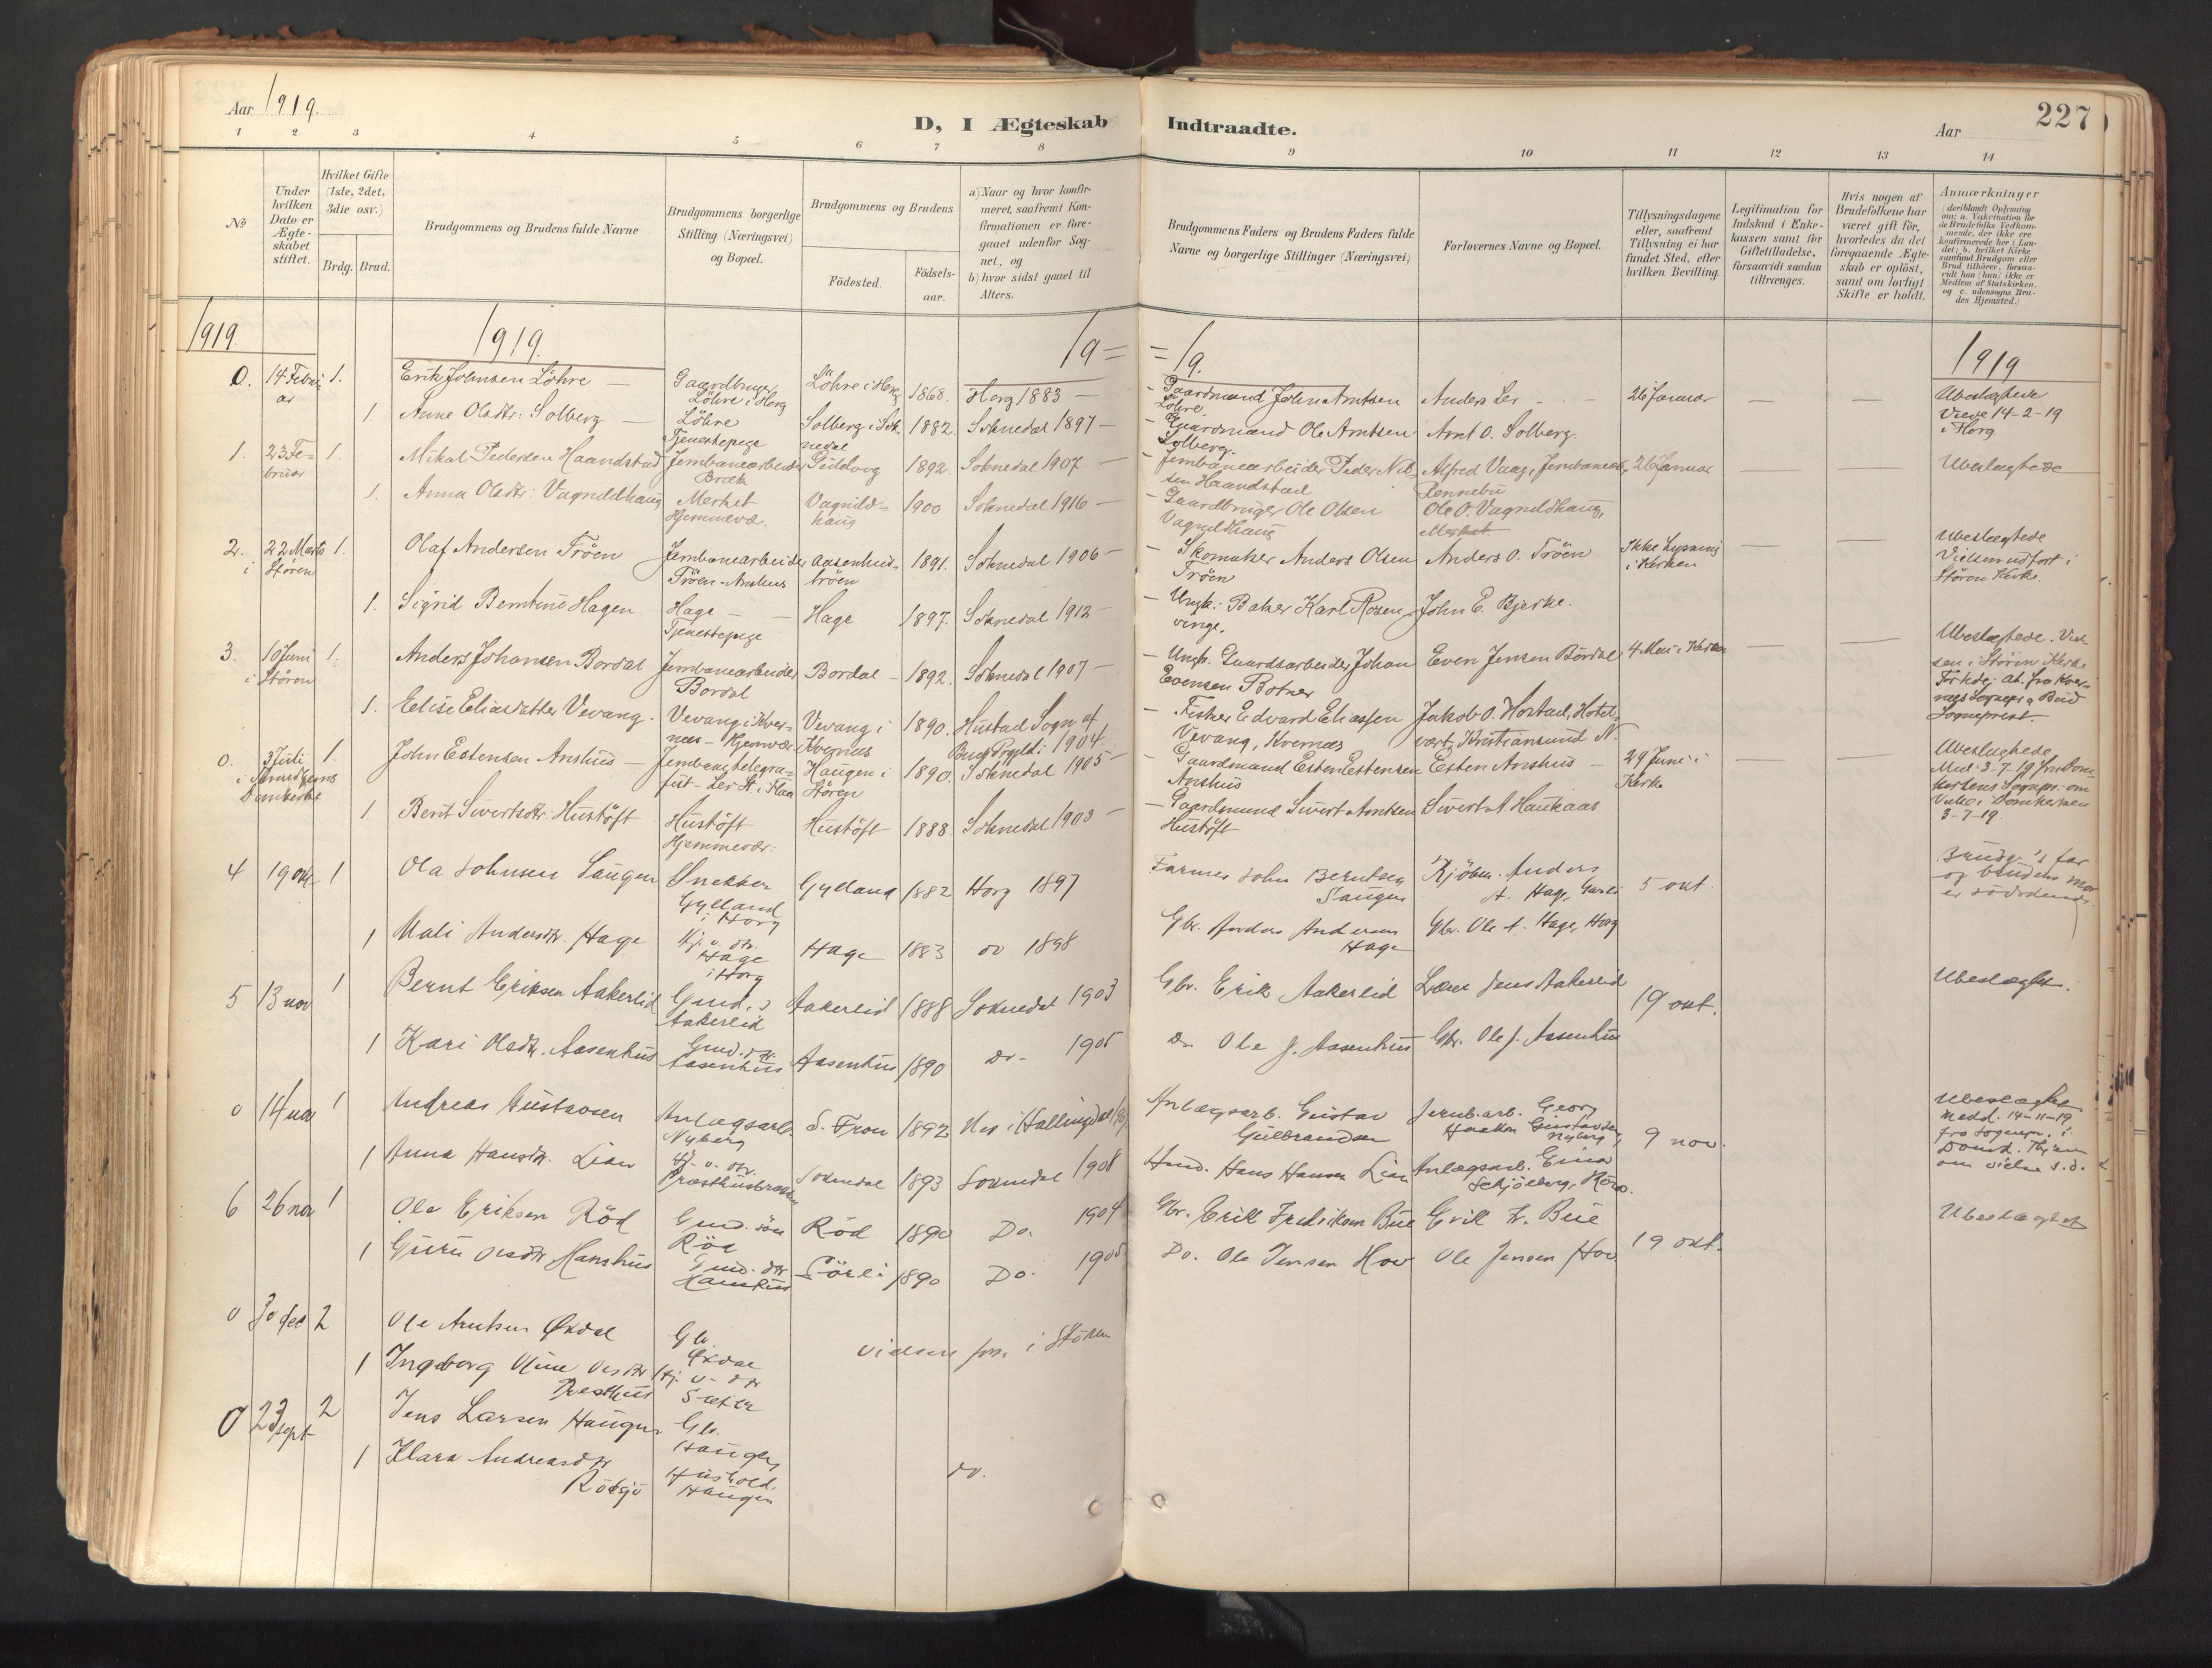 Aar 1919.
D, I Ægteskab Indtraadte.
Aar
227
1 2 3 4 5 6 7 8 9 10 11 12 13 14
№
Under hvilken Dato er Ægteskabet stiftet.
Hvilket Gifte (1ste, 2det, 3die osv.)
Brdg. Brud.
Brudgommens og Brudens fulde Navne
Brudgommens borgerlige Stilling (Næringsvei) og Bopæl.
Brudgommens og Brudens
Födested.
Födsels-aar.
a) Naar og hvor konfirmeret, saafremt Konfirmationen er foregaaet udenfor Sognet, og
b) hvor sidst gaaet til Alters.
Brudgommens Faders og Brudens Faders fulde Navne og borgerlige Stillinger (Næringsvei)
Forlovernes Navne og Bopæl.
Tillysningsdagene eller, saafremt Tillysning ei har fundet Sted, efter hvilken Bevilling.
Legitimation for Indskud i Enkekassen samt for Giftetilladelse, forsaavidt saadan tiltrænges.
Hvis nogen af Brudefolkene har været gift för, hvorledes da det foregaaende Ægteskab er oplöst, samt om lovligt Skifte er holdt.
Anmærkninger (deriblandt Oplysning om: a. Vakcination for de Brudefolks Vedkommende, der ikke ere konfirmerede her i Landet; b. hvilket Kirkesamfund Brudgom eller Brud tilhörer, forsaavidt han (hun) ikke er Medlem af Statskirken, og c. udensogns Brudes Hjemsted.)
1919. 1919. 19= =19. 1919
0. 14 Februar 1. Erik Johnsen Löhre — Gaardbruger Löhre i Horg Löhre i Horg 1868. Horg 1883 — Gaardmand John Arntsen Löhre. Anders Ler 26 Januar — — Ubeslægtede Viede 14-2-19 i Horg
1. Anne Olsdtr: Solberg — Löhre Tjenestepige Solberg i Soknedal 1882. Soknedal 1897 — Gaardmand Ole Arntsen Solberg. Arnt O. Solberg.
1. 23 Februar 1. Mikal Pedersen Haandstad Jernbanearbeider Bræk 1892. Soknedal 1907. — Jernbanearbeider Peder Nilsen Haandstad Alfred Vaag, Jernbanearb, Rennebu 26 Januar — — Ubeslægtede
1. Anna Olsdtr: Vagnildhaug Merket Hjemmevær. Vagnildhaug 1900 Soknedal 1916 — Gaardbruger Ole Olsen Vagnildhaug Ole O. Vagnildhaug, Merket
2. 22 Marts i Stören 1. Olaf Andersen Tröen Jernbanearbeider Tröen-Anshus Aasenhuströen 1891. Soknedal 1906 — Skomaker Anders Olsen Tröen Anders O. Tröen Ikke Lysning i Kirken Ubeslægtede Vielsen udfört i Stören Kirke.
1. Sigrid Berntine Hagen Hage — Tjenestepige Hage 1897. Soknedal 1912 — Ungk: Baker Karl Rosenvinge. John E. Bjerke.
3. 10 Juni i Stören 1. Anders Johansen Bordal Jernbanearbeider Bordal Bordal — 1892. Soknedal 1907 — Ungk. Gaardsarbeider Johan Evensen Botner Even Jensen Bördal 4 Mai i Kirken — Ubeslægtede. Vielsen i Stören Kirke
1. Elise Eliasdatter Vevang. Vevang i Kvernæs — Hjemmevær Vevang i Kvernæs 1890. Hustad Sogn af Bud Prgjld: 1904. — Fisker Edvard Eliassen Vevang, Kvernæs Jakob O. Hostad, Hotelvært, Kristiansund N.
0. 3 Juli i Domkirke 1. John Estensen Anshus — Jernbanetelegrafist — Ler St. i Flaa Haugen i Stören 1890. Soknedal 1905 — Gaardmand Esten Estensen Anshus Esten Anshus — 29 Juni i Kirke — — Ubeslægtede Med: 3-7-19 fra Domkirkens Sognepr. om Vielse i Domkirken 3-7-19.
1. Berit Sivertsdtr: Hustöft Hustöft Hjemmevær: Hustöft 1888. Soknedal 1903 — Gaardmand Sivert Arntsen Hustöft Sivert A Haukaas
4 19 okt 1 Ola Johnsen Saugen Snekker Gylland i Horg Gylland 1882 Horg 1897 Farmer John Berntsen Saugen Kjöbm. Anders A. Hage, 5 okt. Brudg's far og brudens mor er södskende.
1 Mali Andersdtr. Hage Hj. v. dtr. Hage i Horg Hage 1883 do 1898 Gbr. Anders Andersen Hage Gbr. Ole A. Hage, Horg
5 13 nov 1 Bernt Eriksen Aakerlid Gmd. s Aakerlid Aakerlid 1888 Soknedal 1903 Gbr. Erik Aakerlid Lærer Jens Aakerlid 19 okt. Ubeslægtet.
1 Kari Olsdtr. Aasenhus Gmd. dtr. Aasenhus Aasenhus 1890 Do- 1905 Do. Ole J. Aasenhus Gbr. Ole J. Aasenhus
0 14 nov 1 Andreas Gustavsen Anlægsarb. Nyberg S. Fron 1892 Nes i Hallingdal Anlægsarb. Gustav Gulbrandsen Jernb.arb. Georg Haakon Gustavsen, Nyberg 9 nov. Ubeslægtet Medd. 14-11-19 fra sognepr. i Domk. Thjem om vielse s.d.
1 Anna Hansdtr. Lian Hj. v. dtr. Præsthusbrækken Soknedal 1893 Soknedal 1908 Hmd. Hans Hansen Lian Anlægsarb. Einar Schjölberg, Röros.
6 26 nov 1 Ole Eriksen Röd Gmd. sön Röd Röd 1890 Do. 1904 Gbr. Erik Fredriksen Bue Erik Fr. Bue 19 okt. Ubeslægtet
1 Guru Olsdtr Hanshus Gmd. dtr Hanshus Sörli 1890 Do. 1905 Do. Ole Jensen Hov Ole Jensen Hov
0 30 dec 2 Ole Arntsen Öxdal Gbr. Öxdal vielsen i Stören
1 Ingeborg Oline Olsdtr Presthus Hj. v. dtr Sæter
0 23 sept 2 Jens Larsen Haugen Gbr. Haugen do.
1 Klara Andreasdtr Rödsjö Hushold. Haugen